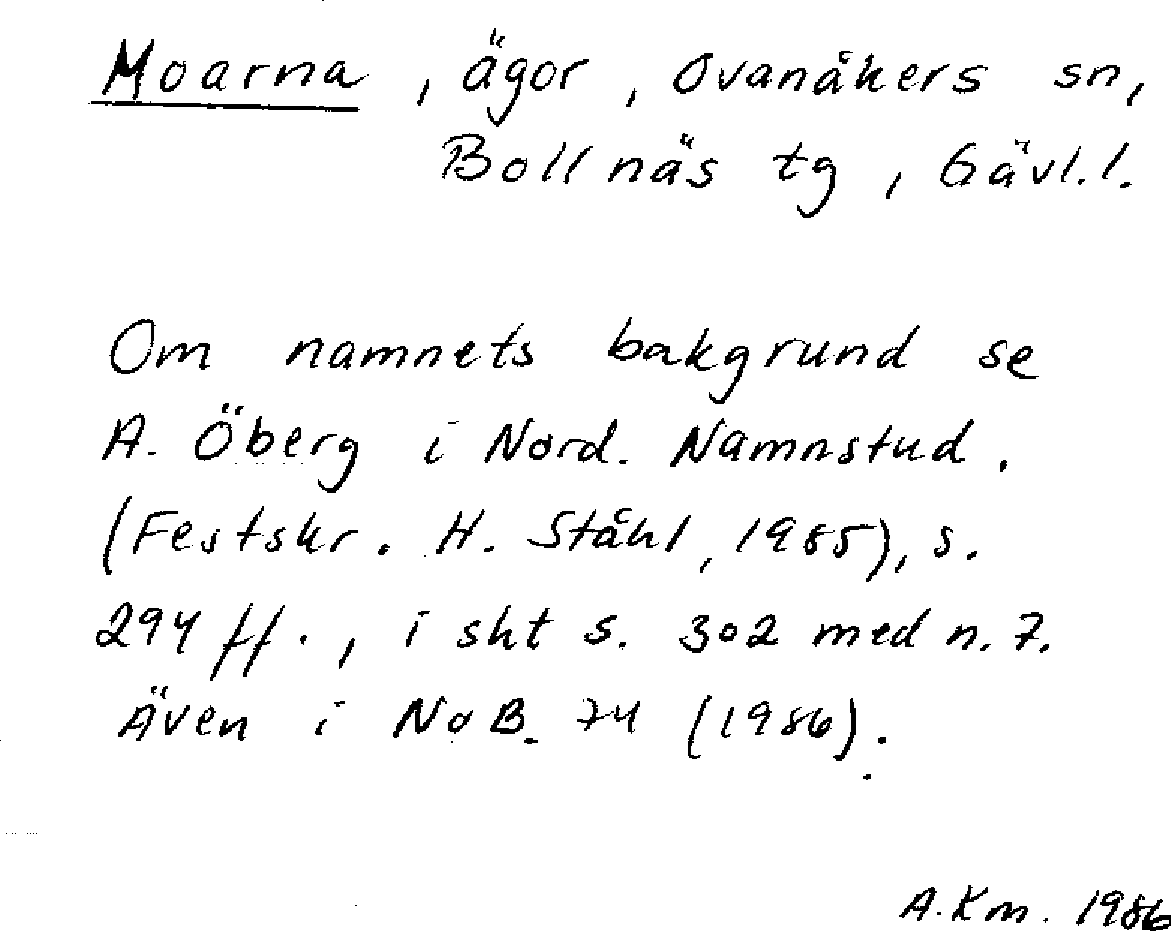 Moarna, ägor, Ovanåkers sn,
Bollnäs tg, Gävl.l.
Om namnets bakgrund se
A. Öberg i Nord. Namnstud.
(Festskr. H. Ståhl, 1985), s.
294 ff., i sht s. 302 med n. 7.
Även i NoB. 74 (1986).
A.Km. 1986